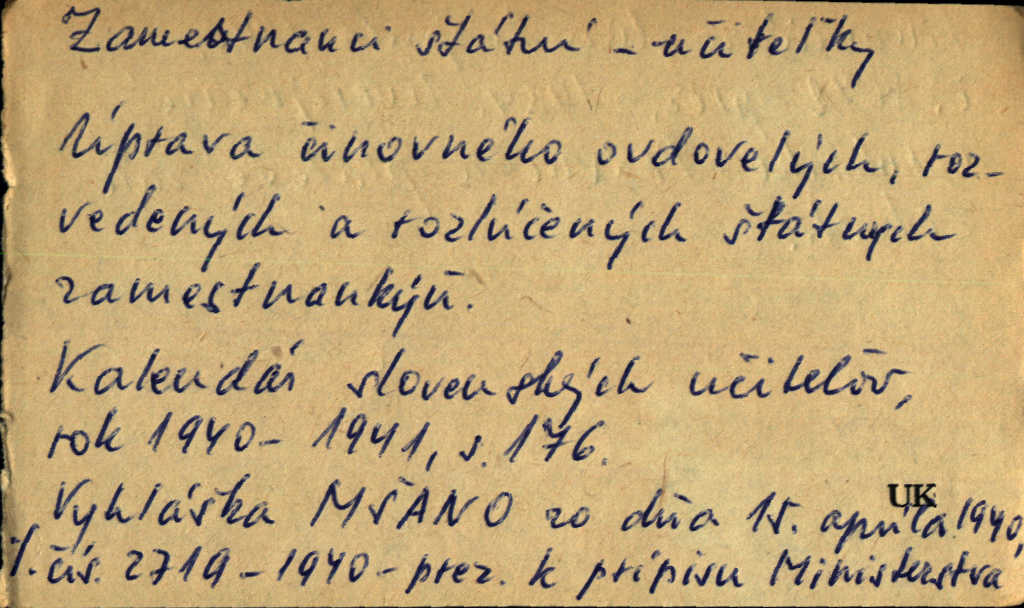 Zamestnanci štátni - učiteľky
Úprava činovného ovdovelých, roz-
vedených a rozlúčených štátnych
zamestnankýň.
Kalendár slovenských učiteľov,
rok 1940 - 1941, s. 176.
Vyhláška MŠANO zo dňa 15. apríla 1940,
UK
čís. 2719 - 1940 - prez. k prípisu Ministerstva